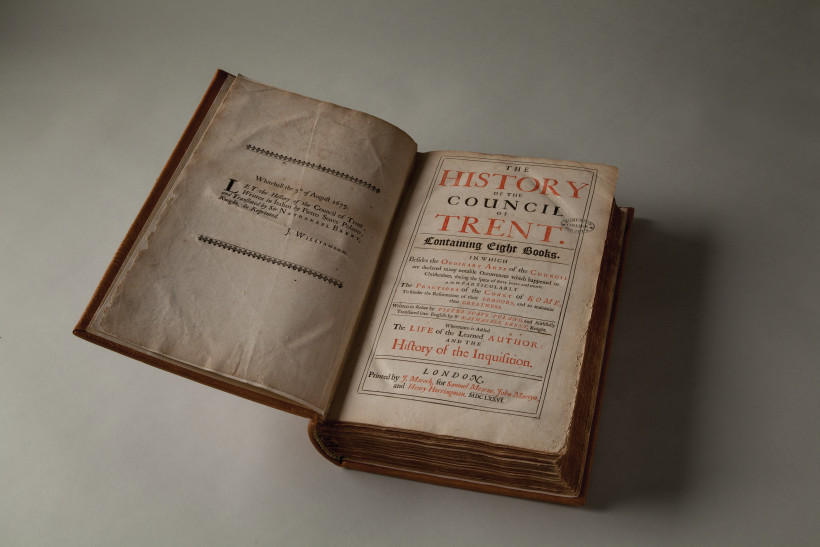 Whitehall the 3ᵈ of August 1675.
LET the History of the Council of Trent,
Written in Italian by Pietro Soave Polano,
and Translated by Sir NATHANAEL BRENT,
Knight, be Reprinted.
J. WILLIAMSON.
THE
HISTORY
OF THE
COUNCIL
OF
TRENT.
Containing Eight Books.
IN WHICH
Besides the ORDINARY ACTS of the COUNCIL,
are declared many notable Occurrences which happened in
Christendom, during the space of forty years and more.
AND PARTICULARLY
The PRACTISES of the COURT of ROME,
To hinder the Reformation of their ERRORS, and to maintain
their GREATNESS.
Written in Italian by PIETRO SOAVE POLANO, and faithfully
Translated into English by Sr. NATHANAEL BRENT, Knight.
Whereunto is Added
The LIFE of the Learned AUTHOR:
AND THE
History of the Inquisition.
LONDON,
Printed by J. Macock, for Samuel Mearne, John Martyn,
and Henry Herringman, MDCLXXVI.